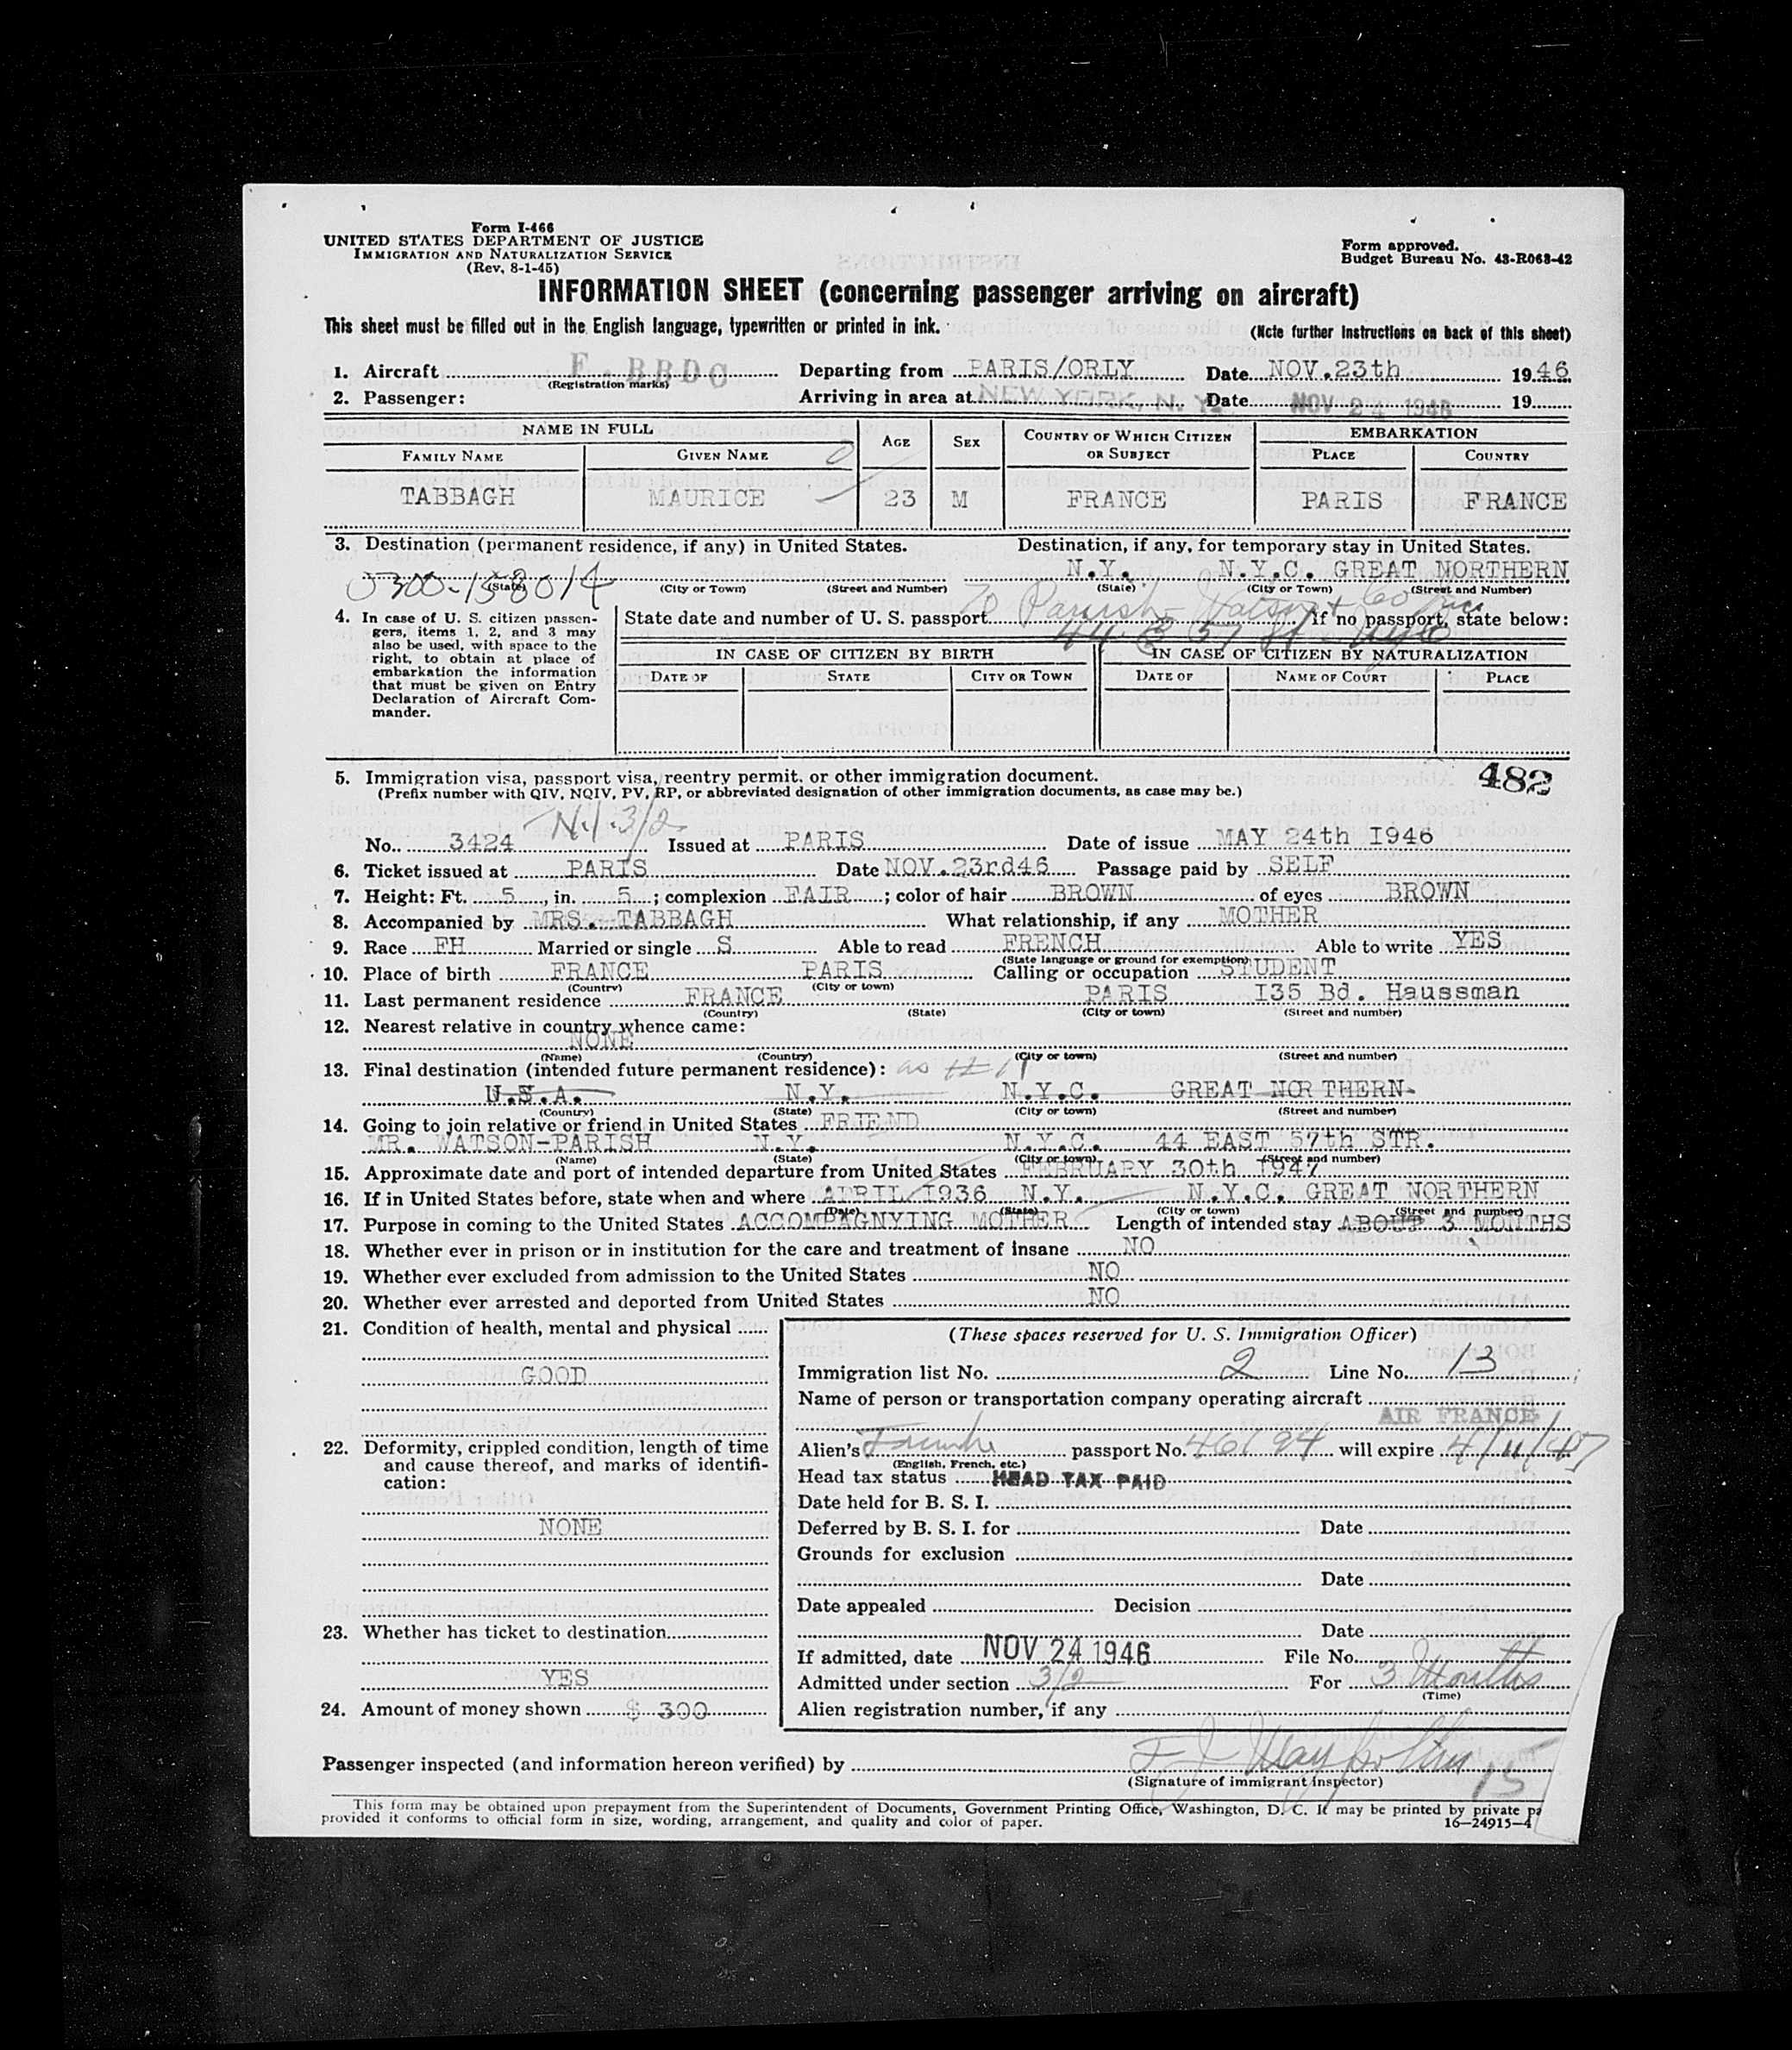 Form I-466
UNITED STATES DEPARTMENT OF JUSTICE
IMMIGRATION AND NATURALIZATION SERVICE
(Rev. 8-1-45)
Form approved.
Budget Bureau No. 43-R063-42
INFORMATION SHEET (concerning passenger arriving on aircraft)
This sheet must be filled out in the English language, typewritten or printed in ink.
(Note further instructions on back of this sheet)
1. Aircraft F-BBDC Departing from PARIS/ORLY Date NOV.23th 1946
(Registration marks)
2. Passenger: Arriving in area at NEW YORK, N. Y. Date NOV 24 1946 19
NAME IN FULL AGE SEX COUNTRY OF WHICH CITIZEN OR SUBJECT EMBARKATION
FAMILY NAME GIVEN NAME PLACE COUNTRY
TABBAGH MAURICE 23 M FRANCE PARIS FRANCE
3. Destination (permanent residence, if any) in United States. Destination, if any, for temporary stay in United States.
0300-158014 N.Y. N.Y.C. GREAT NORTHERN
(State) (City or Town) (Street and Number) (State) (City or Town) (Street and Number)
Parish-Watson & Co Inc
4. In case of U. S. citizen passengers, items 1, 2, and 3 may also be used, with space to the right, to obtain at place of embarkation the information that must be given on Entry Declaration of Aircraft Commander.
State date and number of U. S. passport if no passport, state below:
44 E 57 St - NYC
IN CASE OF CITIZEN BY BIRTH IN CASE OF CITIZEN BY NATURALIZATION
DATE OF STATE CITY OR TOWN DATE OF NAME OF COURT PLACE
482
5. Immigration visa, passport visa, reentry permit, or other immigration document.
(Prefix number with QIV, NQIV, PV, RP, or abbreviated designation of other immigration documents, as case may be.)
3/2
No. 3424 Issued at PARIS Date of issue MAY 24th I946
6. Ticket issued at PARIS Date NOV.23rd46 Passage paid by SELF
7. Height: Ft. 5, in. 5; complexion FAIR; color of hair BROWN of eyes BROWN
8. Accompanied by MRS. TABBAGH What relationship, if any MOTHER
9. Race FH Married or single S Able to read FRENCH Able to write YES
(State language or ground for exemption)
10. Place of birth FRANCE PARIS Calling or occupation STUDENT
(Country) (City or town)
11. Last permanent residence FRANCE PARIS I35 Bd. Haussman
(Country) (State) (City or town) (Street and number)
12. Nearest relative in country whence came:
NONE
(Name) (Country) (City or town) (Street and number)
13. Final destination (intended future permanent residence): as # 11
U.S.A. N.Y. N.Y.C. GREAT NORTHERN
(Country) (State) (City or town) (Street and number)
14. Going to join relative or friend in United States FRIEND
MR. WATSON-PARISH N.Y. N.Y.C. 44 EAST 57th STR.
(Name) (State) (City or town) (Street and number)
15. Approximate date and port of intended departure from United States FEBRUARY 30th 1947
16. If in United States before, state when and where APRIL I936 N.Y. N.Y.C. GREAT NORTHERN
(Date) (State) (City or town) (Street and number)
17. Purpose in coming to the United States ACCOMPAGNYING MOTHER Length of intended stay ABOUT 3 MONTHS
18. Whether ever in prison or in institution for the care and treatment of insane NO
19. Whether ever excluded from admission to the United States NO
20. Whether ever arrested and deported from United States NO
21. Condition of health, mental and physical
GOOD
22. Deformity, crippled condition, length of time and cause thereof, and marks of identification:
NONE
23. Whether has ticket to destination
YES
24. Amount of money shown $ 300
(These spaces reserved for U. S. Immigration Officer)
Immigration list No. 2 Line No. 13
Name of person or transportation company operating aircraft
AIR FRANCE
Alien's French passport No. 46194 will expire 4/11/47
(English, French, etc.)
Head tax status HEAD TAX PAID
Date held for B. S. I.
Deferred by B. S. I. for Date
Grounds for exclusion
Date
Date appealed Decision
Date
If admitted, date NOV 24 1946 File No.
Admitted under section 3/2 For 3 Months
(Time)
Alien registration number, if any
Passenger inspected (and information hereon verified) by
(Signature of immigrant inspector)
15
This form may be obtained upon prepayment from the Superintendent of Documents, Government Printing Office, Washington, D. C. It may be printed by private
provided it conforms to official form in size, wording, arrangement, and quality and color of paper.
16—24915-4